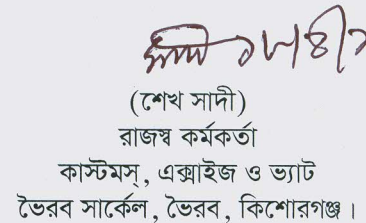 (শেখ সাদী)
রাজস্ব কর্মকর্তা
কাস্টমস্, এক্সাইজ ও ভ্যাট
ভৈরব সার্কেল, ভৈরব, কিশোরগঞ্জ।